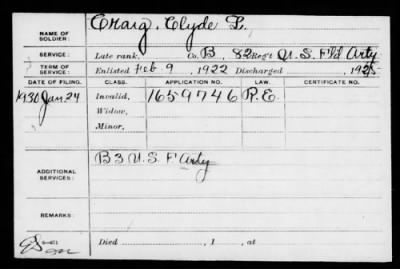 NAME OF SOLDIER: Craig, Clyde L.
SERVICE: Late rank, Co. B, 82 Reg't U.S. F'ld Arty
TERM OF SERVICE: Enlisted Feb 9, 1922 Discharged , 1925
DATE OF FILING. CLASS. APPLICATION NO. LAW. CERTIFICATE NO.
1930 Jan. 24 Invalid, 1659746 R.E.
Widow,
Minor,
ADDITIONAL SERVICES: B 3 U.S. F Arty
REMARKS:
Died , 1 , at